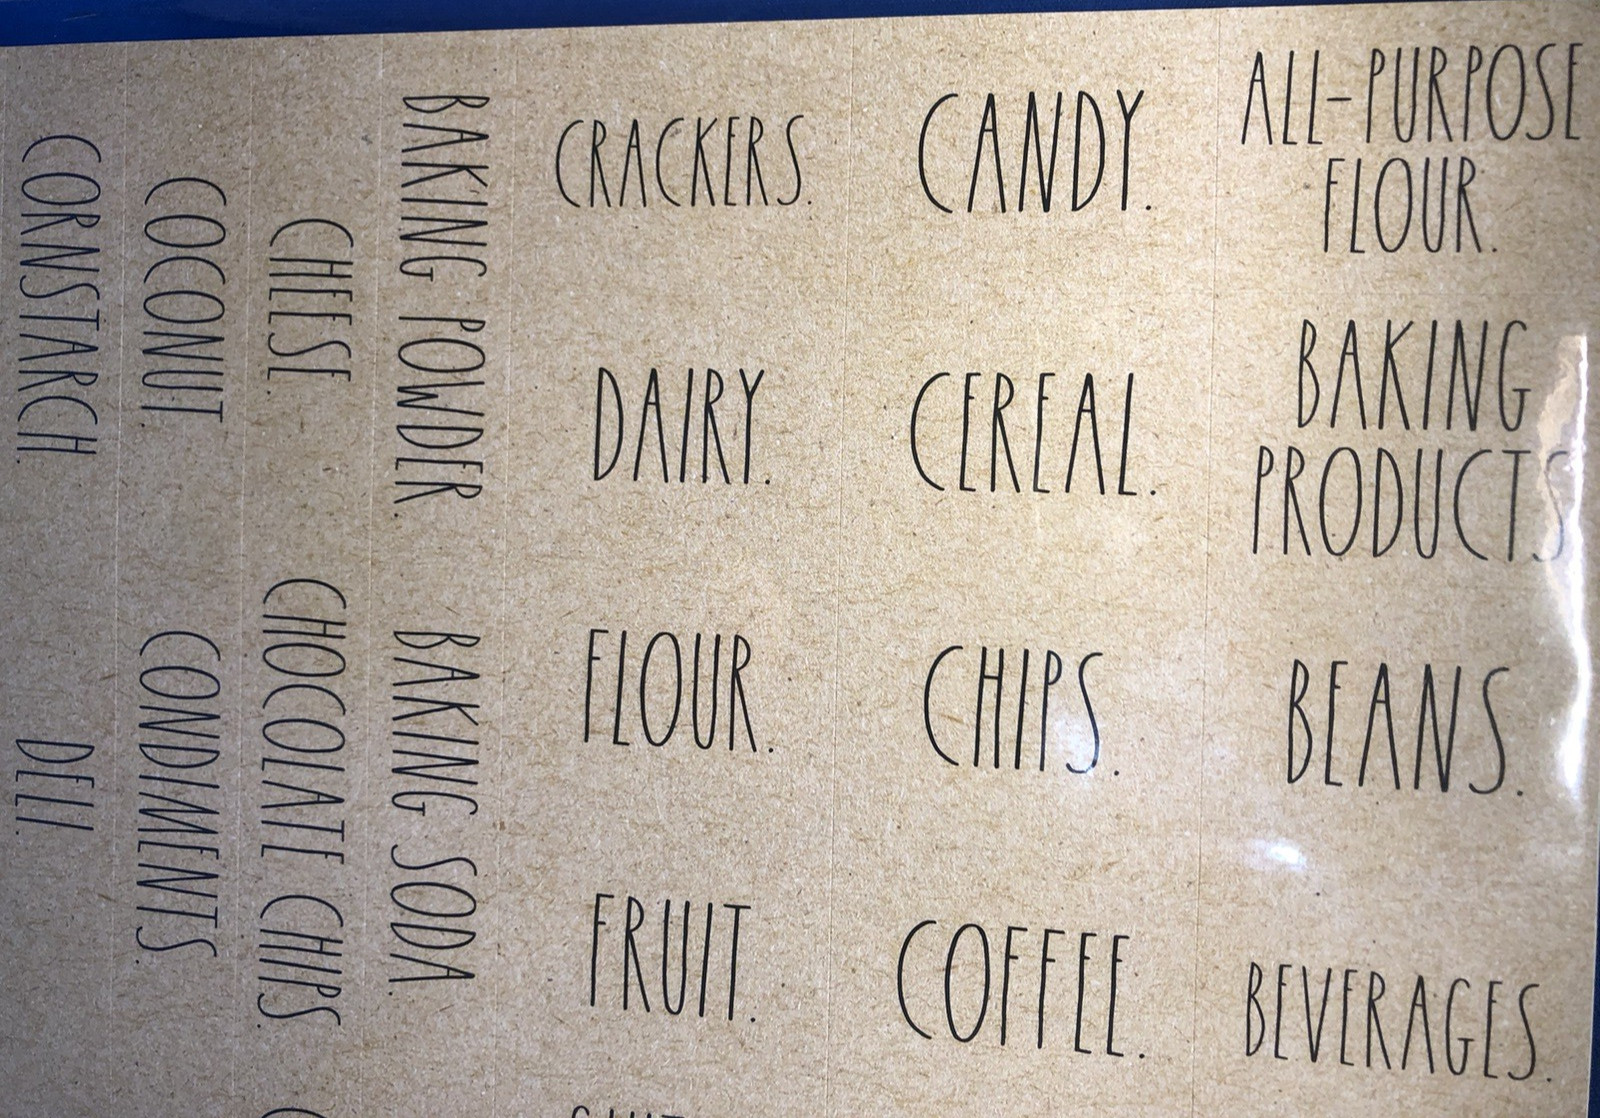 ALL-PURPOSE
FLOUR.
BAKING
PRODUCTS
BEANS.
BEVERAGES.
CANDY.
CEREAL.
CHIPS.
COFFEE.
CRACKERS.
DAIRY.
FLOUR.
FRUIT.
BAKING POWDER.
BAKING SODA.
CHEESE.
CHOCOLATE CHIPS.
COCONUT
CONDIMENTS.
CORNSTARCH.
DELI.